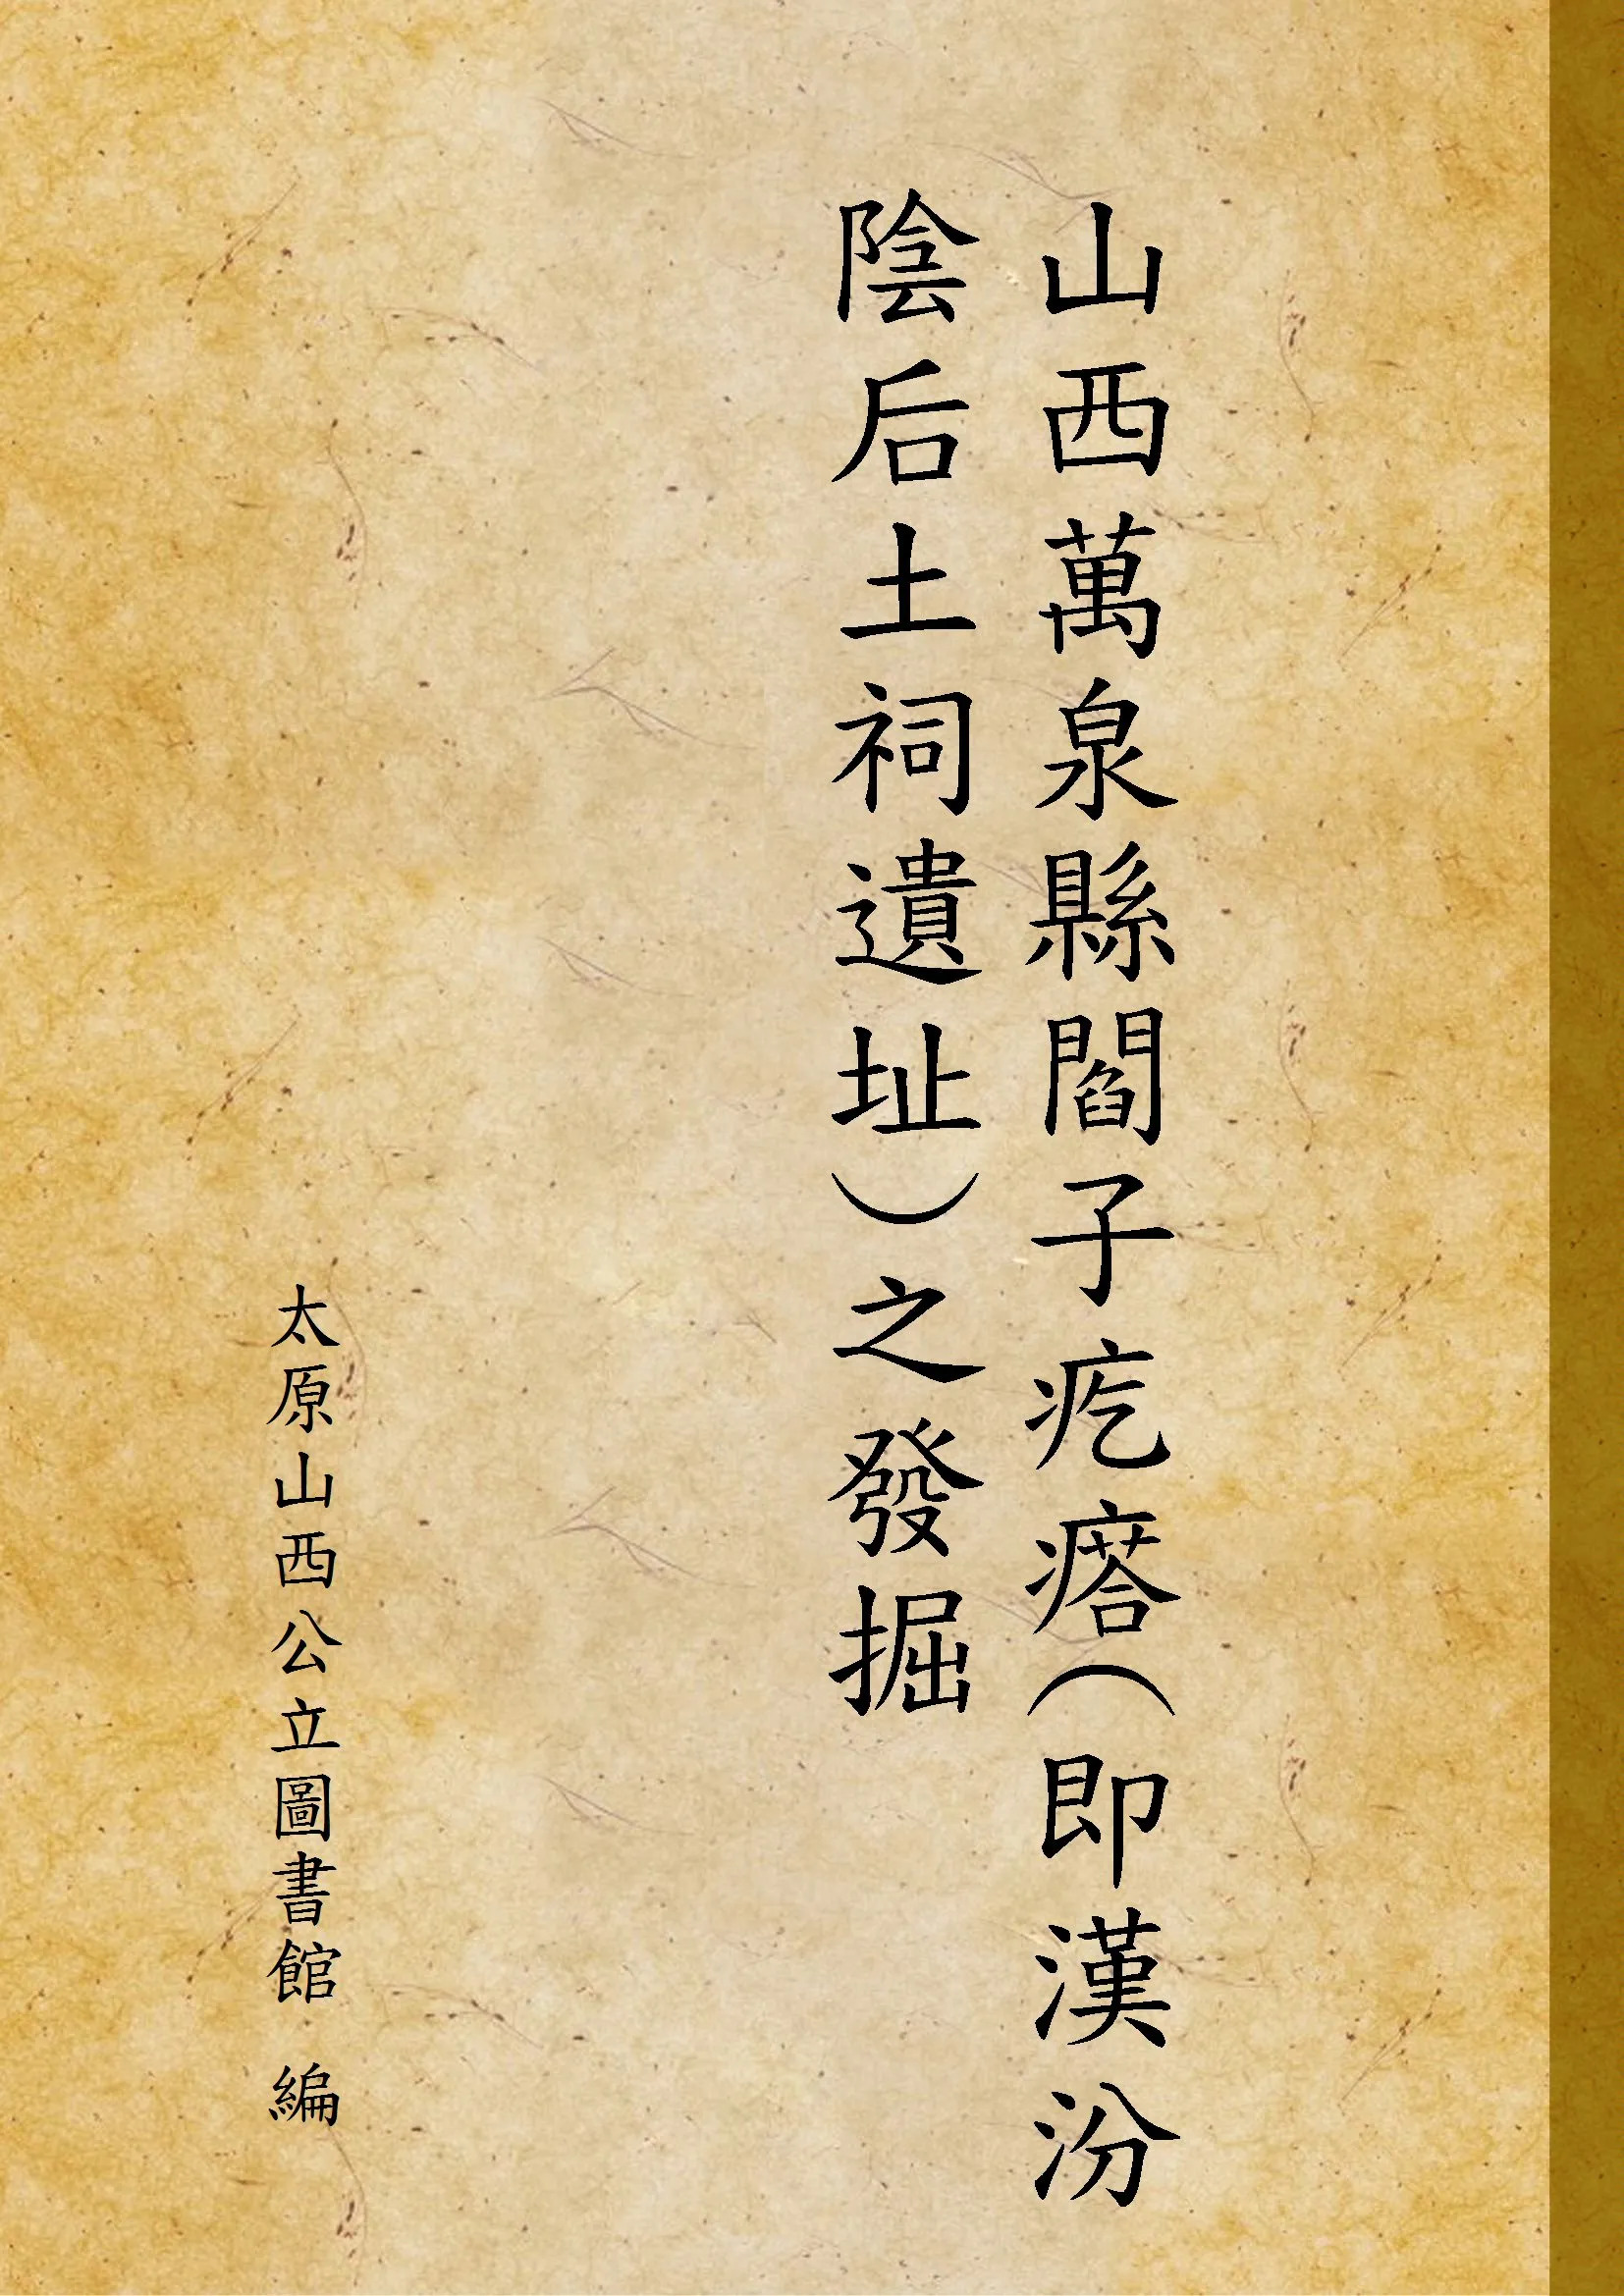 山西萬泉縣閻子疙瘩（即漢汾
陰后土祠遺址）之發掘
太原山西公立圖書館 編